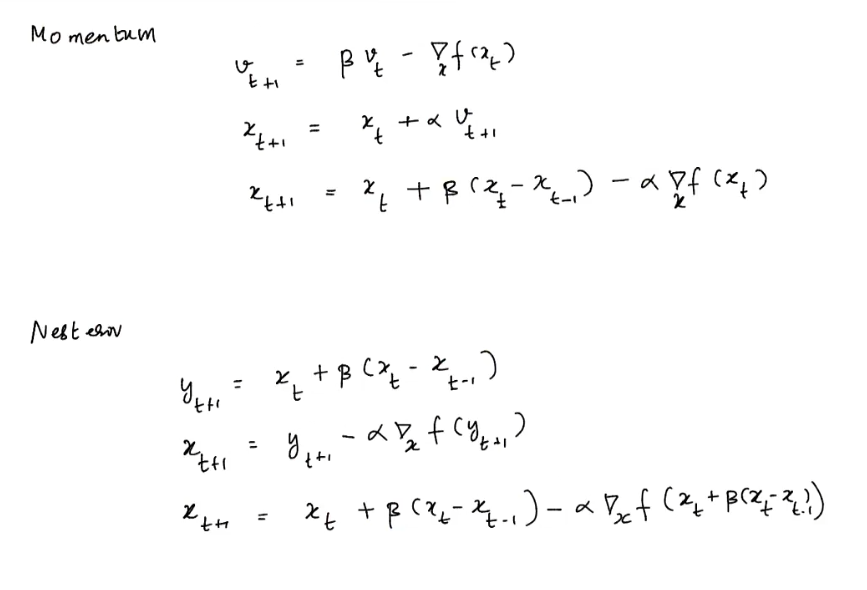 Momentum
v_{t+1} = β v_t - ∇_x f(x_t)
x_{t+1} = x_t + α v_{t+1}
x_{t+1} = x_t + β (x_t - x_{t-1}) - α ∇_x f (x_t)
Nesterov
y_{t+1} = x_t + β (x_t - x_{t-1})
x_{t+1} = y_{t+1} - α ∇_x f (y_{t+1})
x_{t+1} = x_t + β (x_t - x_{t-1}) - α ∇_x f (x_t + β(x_t - x_{t-1}))